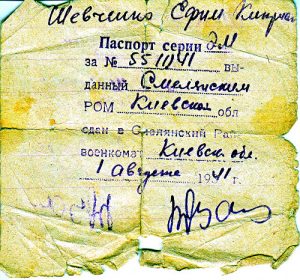 Шевченко Ефим Киприя
Паспорт серии ЭМ
за № 551041 вы-
данный Смелянским
РОМ Киевской обл
сдан в Смелянский Рай-
военкомат Киевск. обл.
1 августа 1941 г.